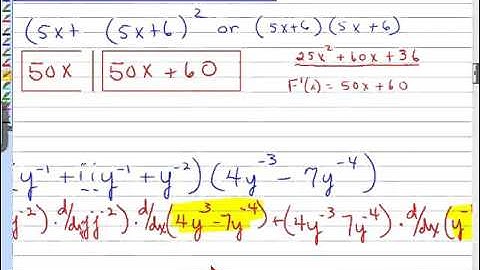 (5x+ (5x+6)² or (5x+6)(5x+6)
50x 50x+60 25x²+60x+36
F'(x) = 50x+60
(y⁻¹ + y⁻¹ + y⁻²)(4y⁻³ - 7y⁻⁴)
y⁻²) · d/dy y⁻²) · d/dx (4y⁻³ - 7y⁻⁴) + (4y⁻³ 7y⁻⁴) · d/dx (y⁻¹